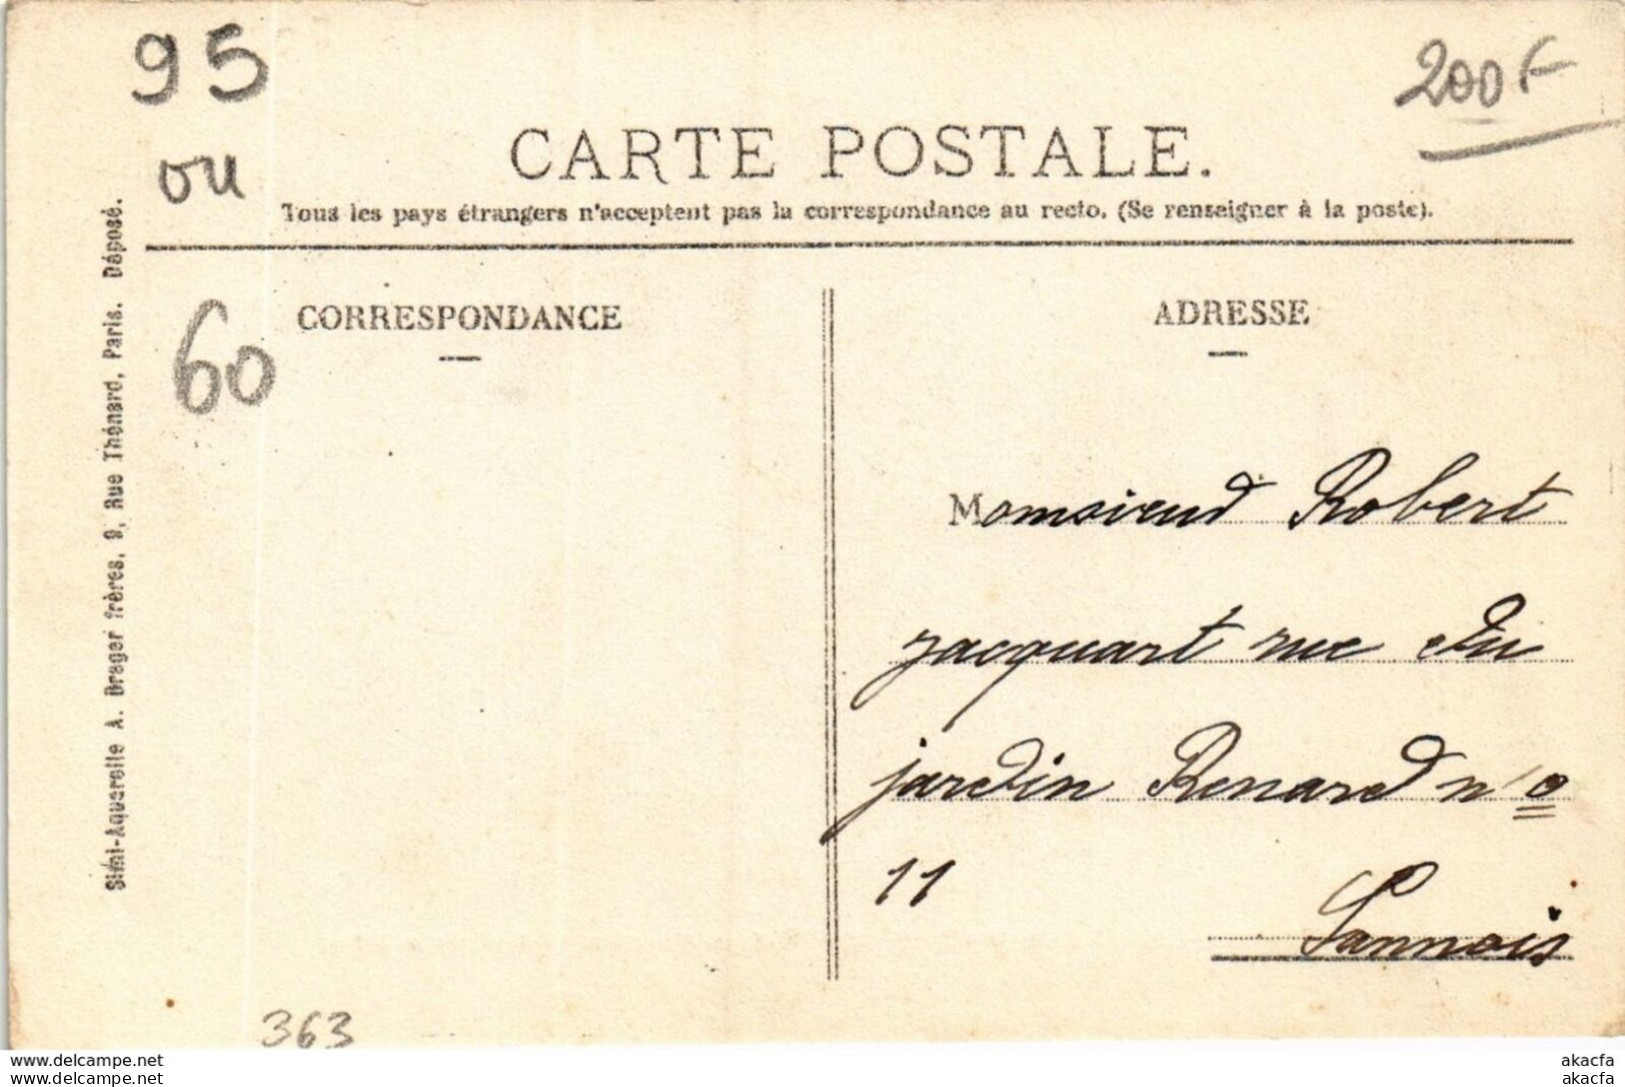 95
ou
60
200F
CARTE POSTALE.
Tous les pays étrangers n'acceptent pas la correspondance au recto. (Se renseigner à la poste).
CORRESPONDANCE
ADRESSE
Monsieur Robert
jacquart rue du
jardin Renard n°
11
Sannois
Simi-Aquarelle A. Breger frères, 9, Rue Thénard, Paris. Déposé.
363
www.delcampe.net
www.delcampe.net
akacfa
akacfa